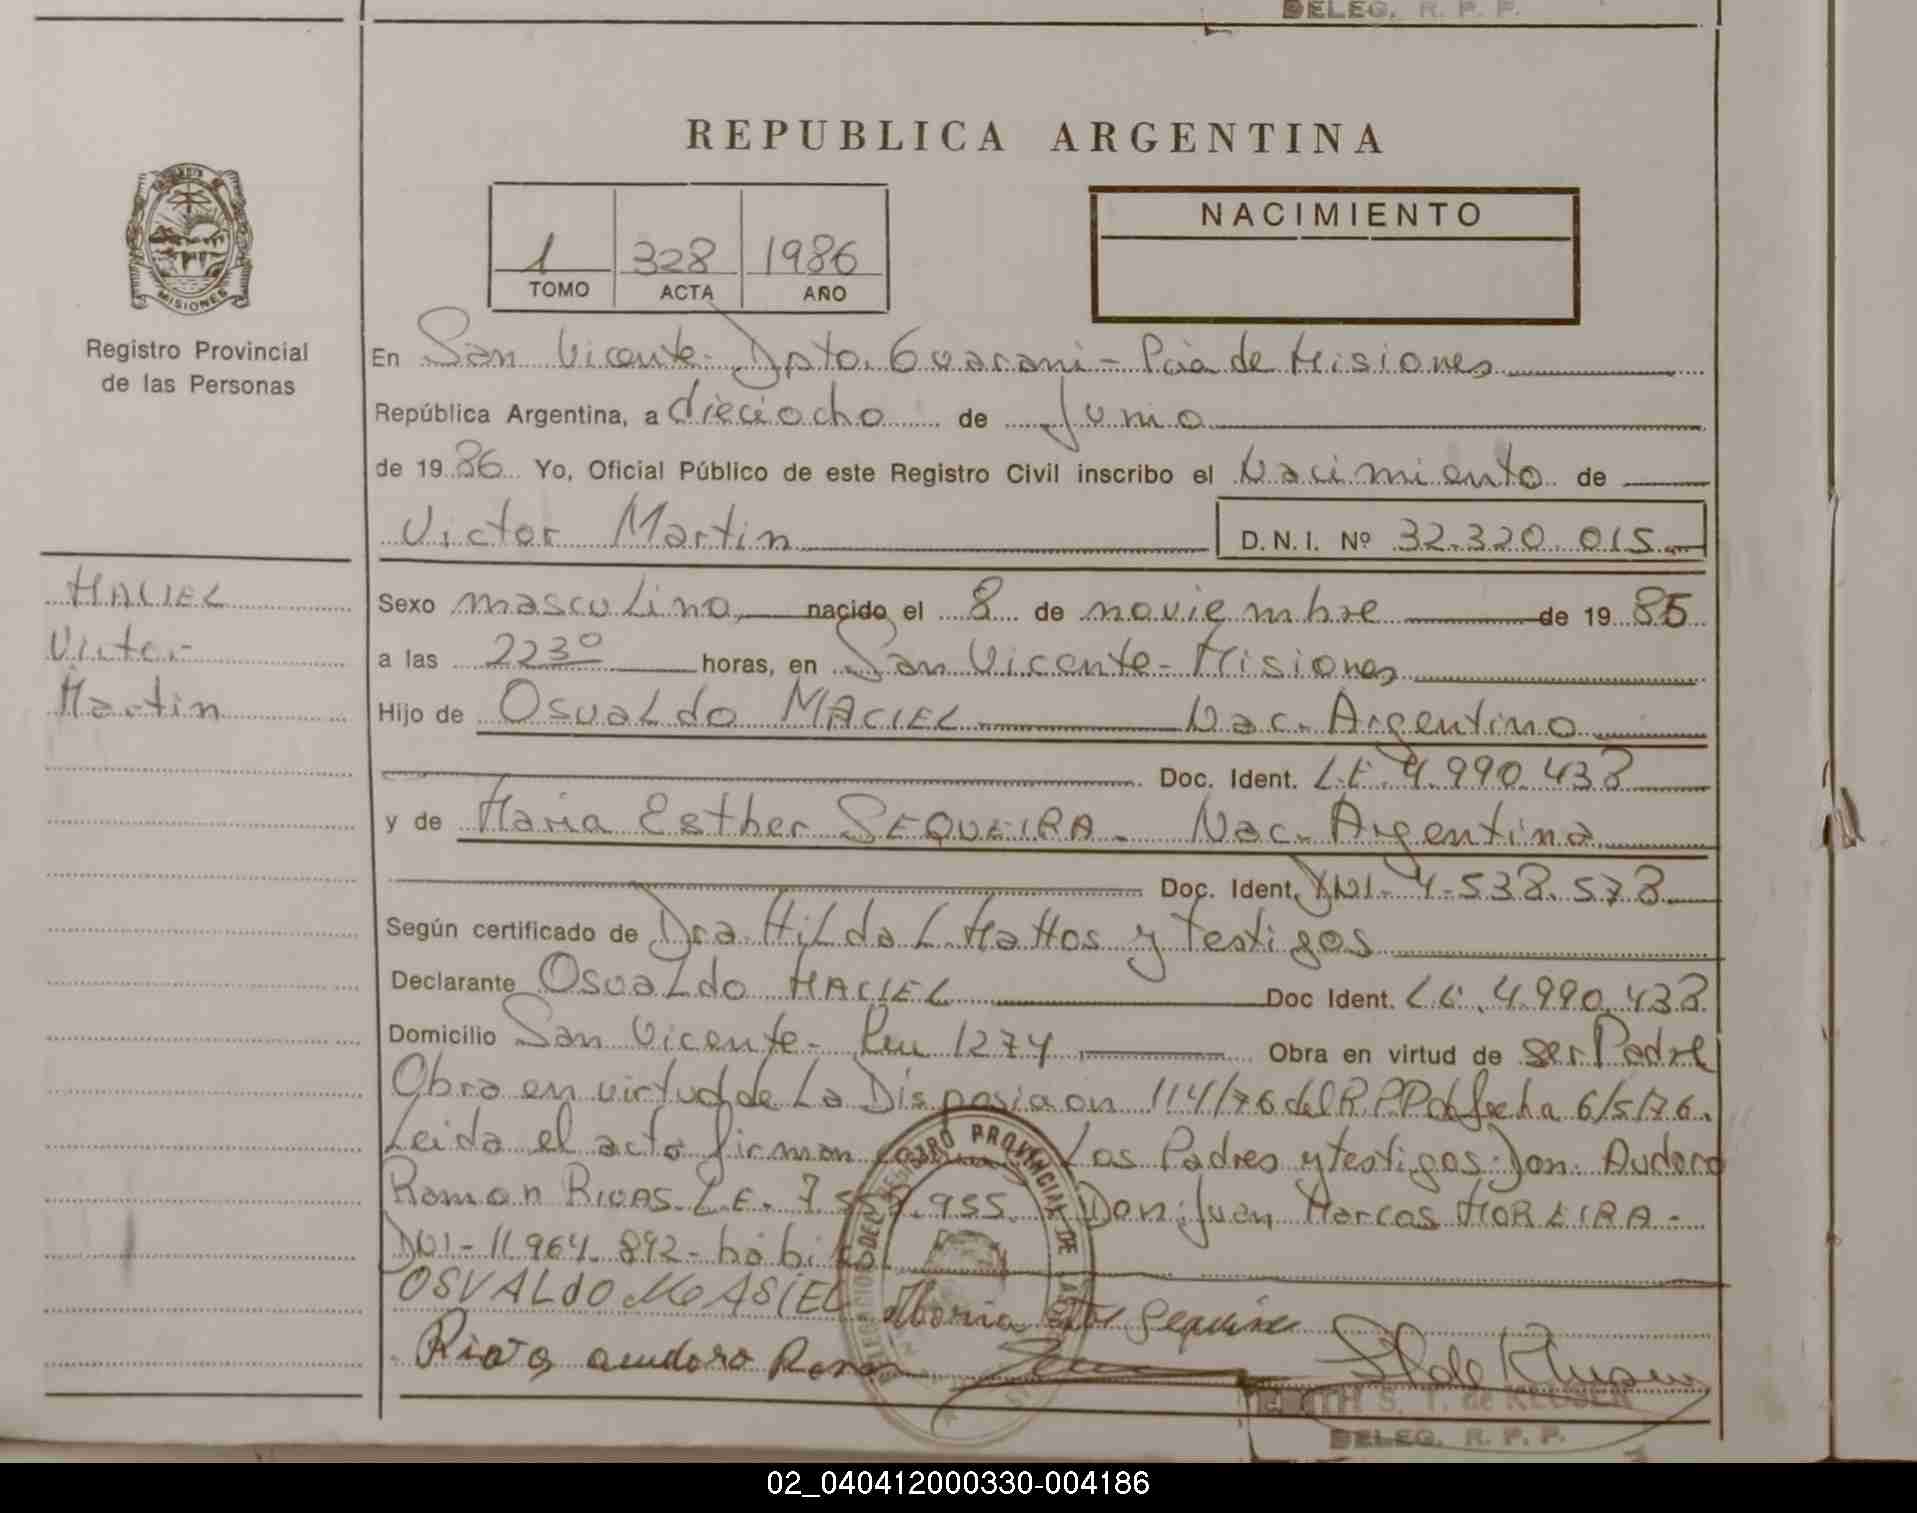 DELEG. R. P. P.
REPUBLICA ARGENTINA
NACIMIENTO
1 328 1986
TOMO ACTA AÑO
MISIONES
Registro Provincial
de las Personas
En San Vicente - Dpto. Guarani - Pcia de Misiones
República Argentina, a dieciocho de Junio
de 19 86 Yo, Oficial Público de este Registro Civil inscribo el Nacimiento de
Victor Martin D.N.I. Nº 32.320.015
MACIEL
Victor
Martin
Sexo masculino nacido el 8 de noviembre de 19 85
a las 22 30 horas, en San Vicente - Misiones
Hijo de Osvaldo MACIEL Nac. Argentino
Doc. Ident. L.E. 4.990.438
y de Maria Esther SEQUEIRA - Nac. Argentina
Doc. Ident. DNI - 4.538.578
Según certificado de Dra. Hilda L. Mattos y testigos
Declarante Osvaldo MACIEL Doc Ident. L.E. 4.990.438
Domicilio San Vicente - 1274 Obra en virtud de ser Padre
Obra en virtud de La Disposicion 114/76 del R.P.P de fecha 6/5/76.
Leida el acta firman Los Padres y testigos: Don. Audoro
Ramon RIVAS. L.E. 7 955. Don: Juan Marcos MOREIRA -
DNI - 11.964.892 -
OSVALDO MASIEL Maria Sequeira
Rivas audoro Ramon
REGISTRO PROVINCIAL DE LAS
S. T. de KLUSEN
DELEG. R. P. P.
02_040412000330-004186